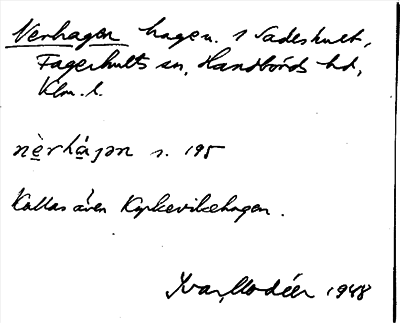 Nerhagen hagen. i Sadeshult,
Fagerhults sn, Handbörds hd,
Klm. l.
nè̱rhá̱gən s. 195
Kallas även Kyrkevikehagen.
Ivar Modéer 1948